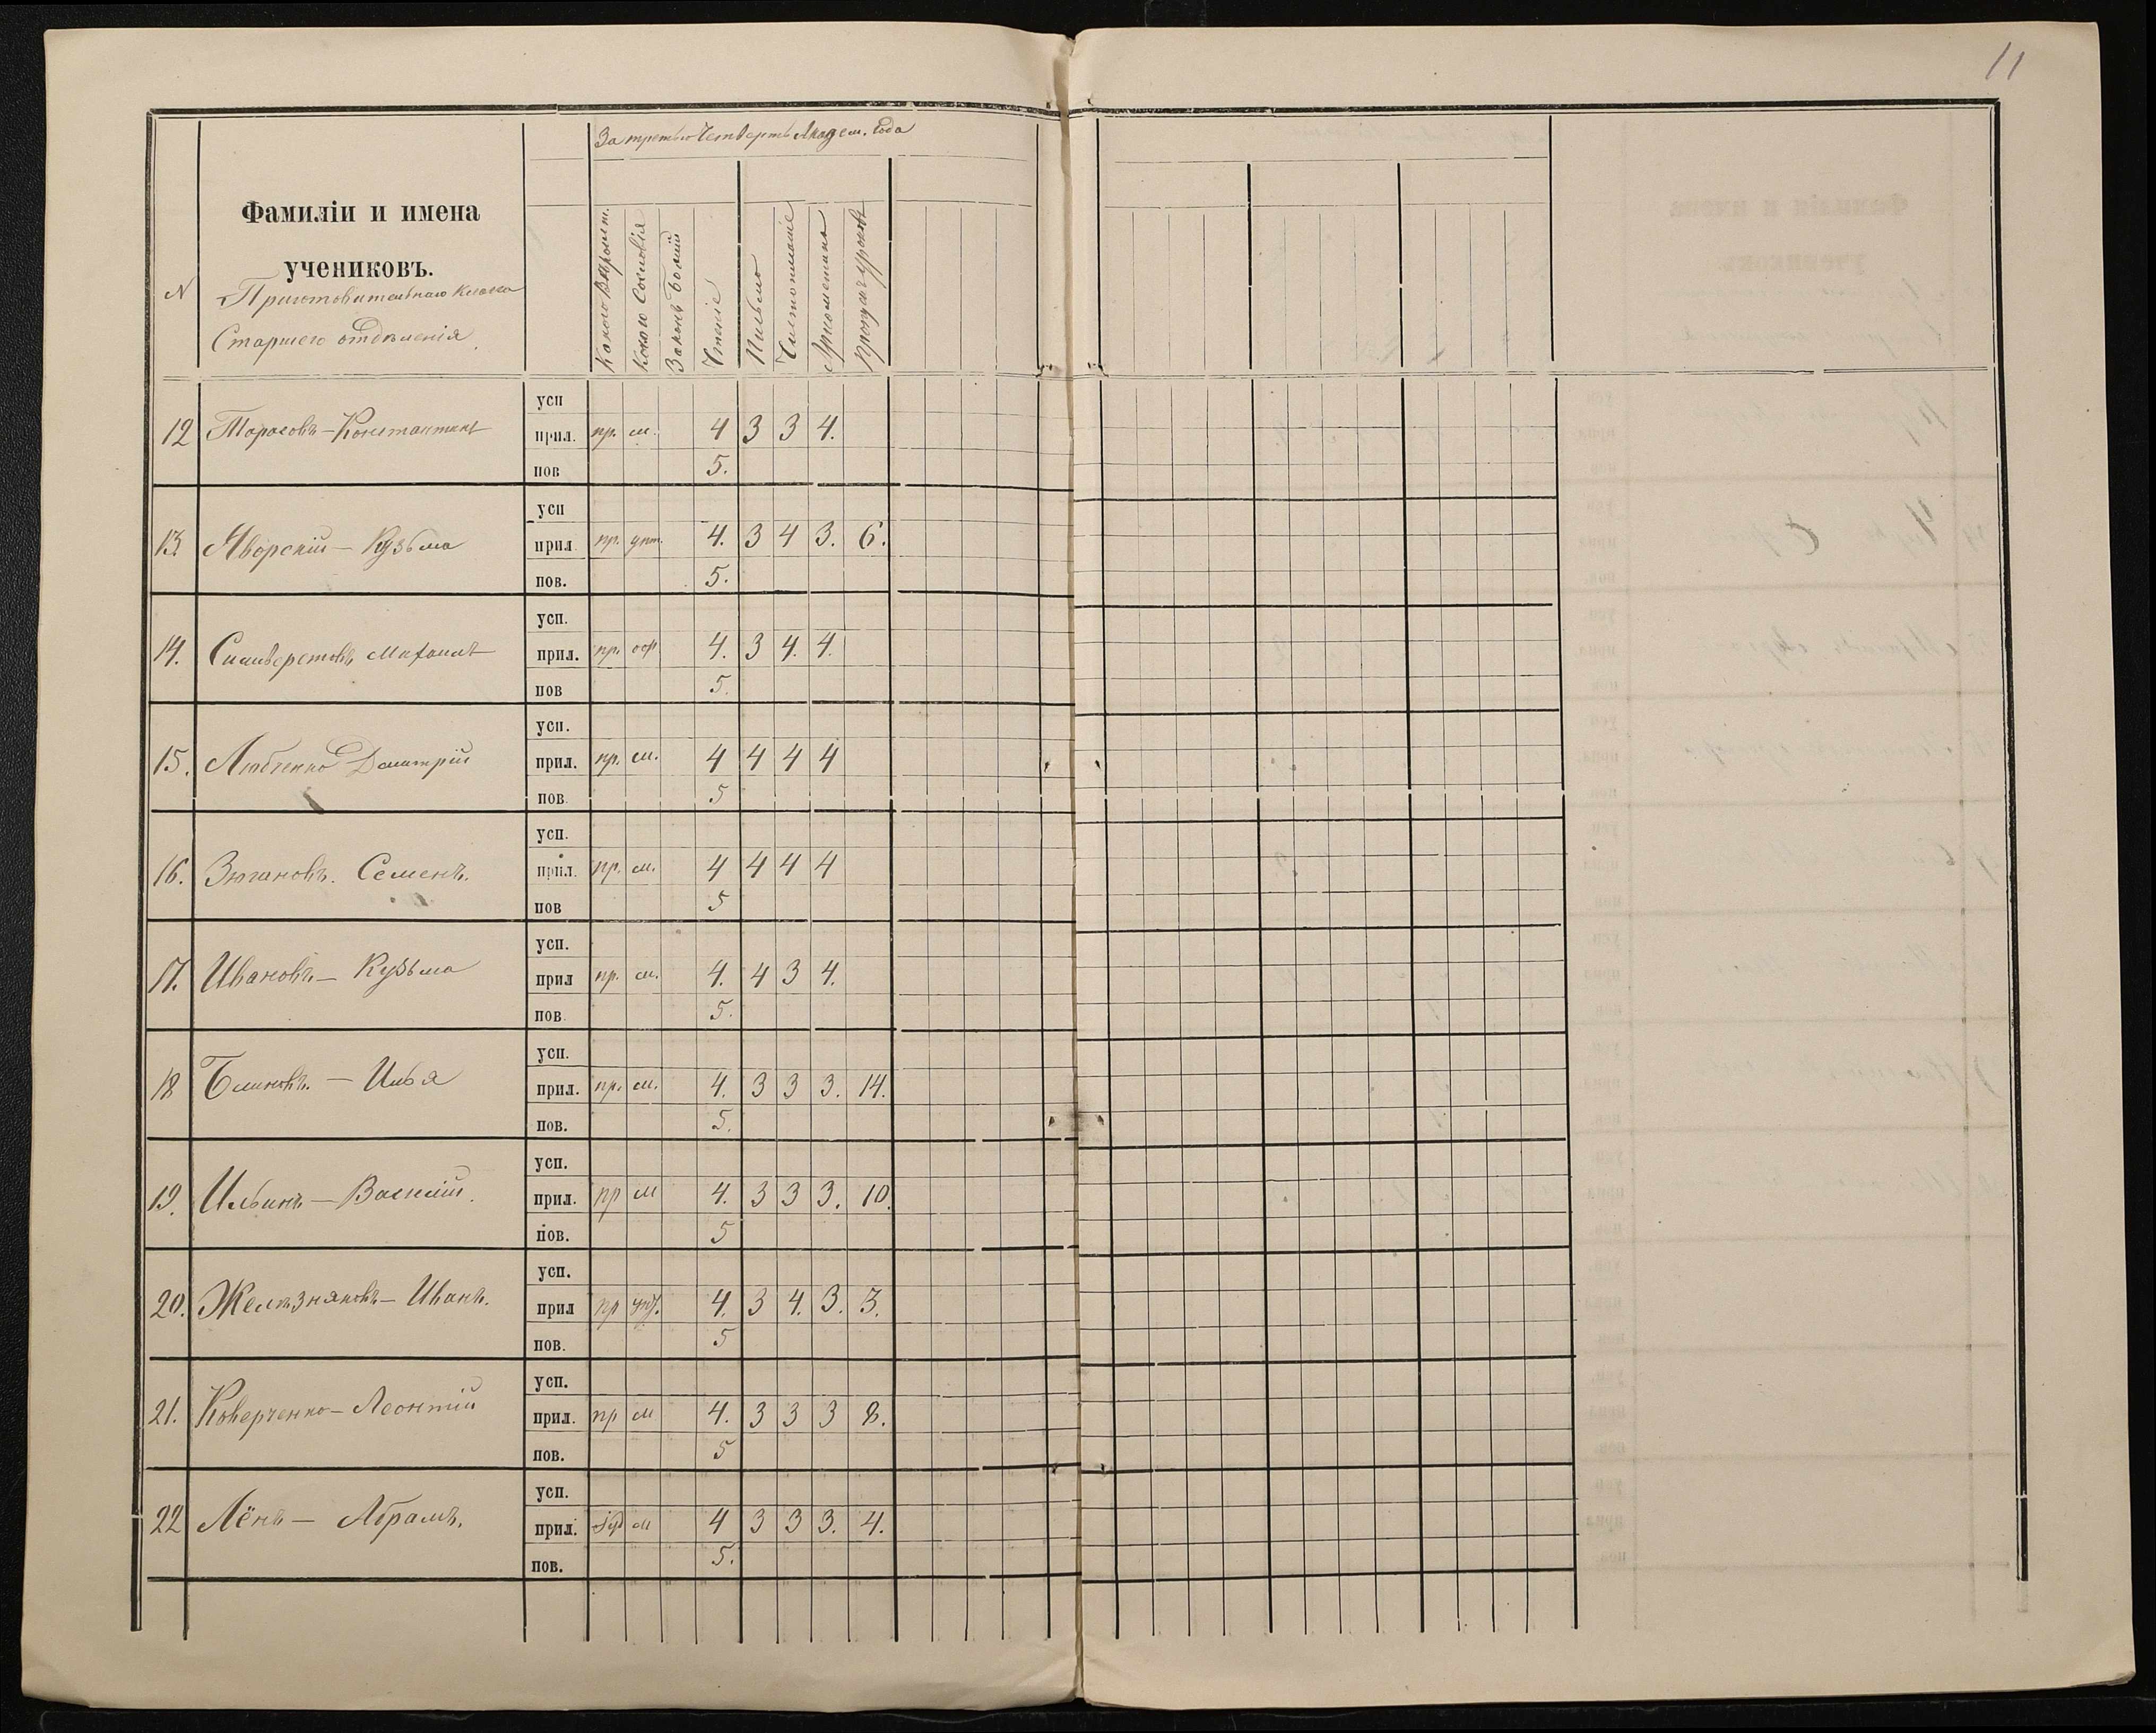 11
За третью Четверть Академ. Года
N
Фамиліи и имена
учениковъ.
Приготовительнаго Класса
Старшего отдѣленія.
Какого Вѣроисп.
Какого Сословія
Законъ Божій
Чтеніе
Письмо
Чистописаніе
Арифметика
Пропущ. уроковъ
усп
12 Тарасовъ - Константинъ прил. пр. м. 4 3 3 4.
пов 5.
усп
13. Яворскій - Кузьма прил пр. 4. 3 4 3. 6.
пов. 5.
усп.
14. Силиверстовъ Михаилъ прил. пр. 4. 3 4. 4.
пов 5.
усп.
15. Любченко Дмитрій прил. пр. м. 4 4 4 4
пов. 5
усп.
16. Зюгановъ. Семенъ. прил. пр. м. 4 4 4 4
пов 5
усп.
17. Ивановъ - Кузьма прил пр. м. 4. 4 3 4.
пов. 5.
усп.
18 Блиновъ. - Илья прил. пр. м. 4. 3 3 3. 14.
пов. 5.
усп.
19. Ильинъ - Василій. прил. пр м 4. 3 3 3. 10.
пов. 5
усп.
20. Желѣзняковъ - Иванъ. прил пр 4. 3 4. 3. 3.
пов. 5
усп.
21. Коверченко - Леонтій прил. пр м 4. 3 3 3 8.
пов. 5
усп.
22 Лёнь - Абрамъ. прил. іуд м 4 3 3 3. 4.
пов. 5.